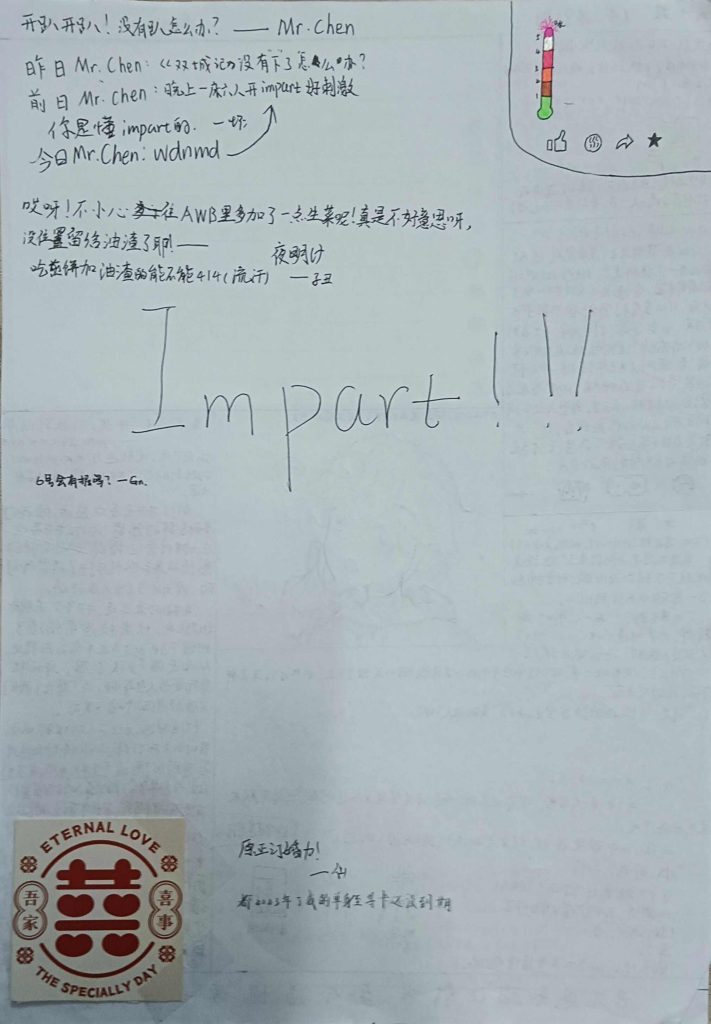 开趴开趴！没有趴怎么办？—— Mr.Chen
昨日 Mr.Chen：《双城记》没有下了怎么办？
前日 Mr.Chen：晚上一床六人开impart好刺激
你是懂impart的．一坏
今日Mr.Chen：wdnmd
哎呀！不小心往AWB里多加了一点生菜呢！真是不好意思呀，
没位置留给油渣了耶！——
夜明け
吃煎饼加油渣的能不能414（流汗） —子丑
Impart!!!
6号会有据吗？—Gn.
原正订婚力！
都2023年了我的单身至尊卡还没到期
ETERNAL LOVE
吾家
囍
喜事
THE SPECIALLY DAY
5
4
3
2
1